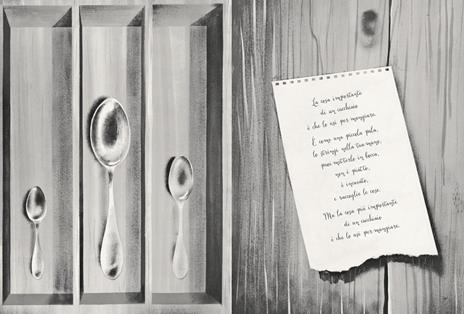 La cosa importante
di un cucchiaio
è che lo usi per mangiare.
È come una piccola pala,
lo stringi nella tua mano,
puoi metterlo in bocca,
non è piatto,
è incavato,
e raccoglie le cose.
Ma la cosa più importante
di un cucchiaio
è che lo usi per mangiare.